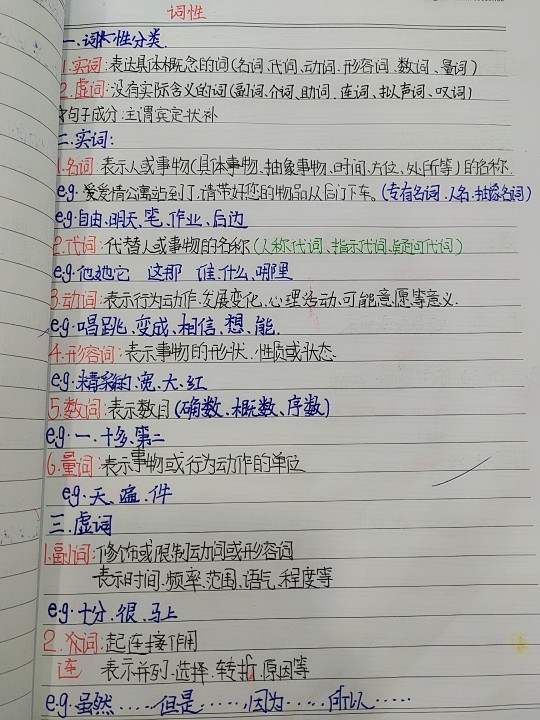 词性
一.词性分类.
1.实词:表达具体概念的词(名词.代词.动词.形容词.数词.量词)
2.虚词:没有实际含义的词(副词.介词.助词.连词.拟声词.叹词)
句子成分:主谓宾定状补
二.实词:
1.名词:表示人或事物(具体事物、抽象事物、时间、方位、处所等)的名称.
eg.爱情公寓站到了,请带好您的物品从后门下车。(专有名词.人名.抽象名词)
eg.自由.明天.笔.作业.后边
2.代词:代替人或事物的名称(人称代词、指示代词、疑问代词)
eg.他她它 这那 谁.什么.哪里
3.动词:表示行为动作.发展变化、心理活动.可能意愿等意义.
eg.唱跳.变成.相信.想.能.
4.形容词:表示事物的形状.性质或状态.
eg.精彩的.宽.大.红
5.数词:表示数目(确数、概数、序数)
eg.一.十多.第二
6.量词:表示事物或行为动作的单位
eg.天.遍.件
三.虚词
1.副词:修饰或限制动词或形容词
表示时间.频率.范围.语气.程度等
eg.十分.很.马上
2.介词:起连接作用
连 表示并列.选择.转折.原因等
eg.虽然.....但是.....因为.....所以.....